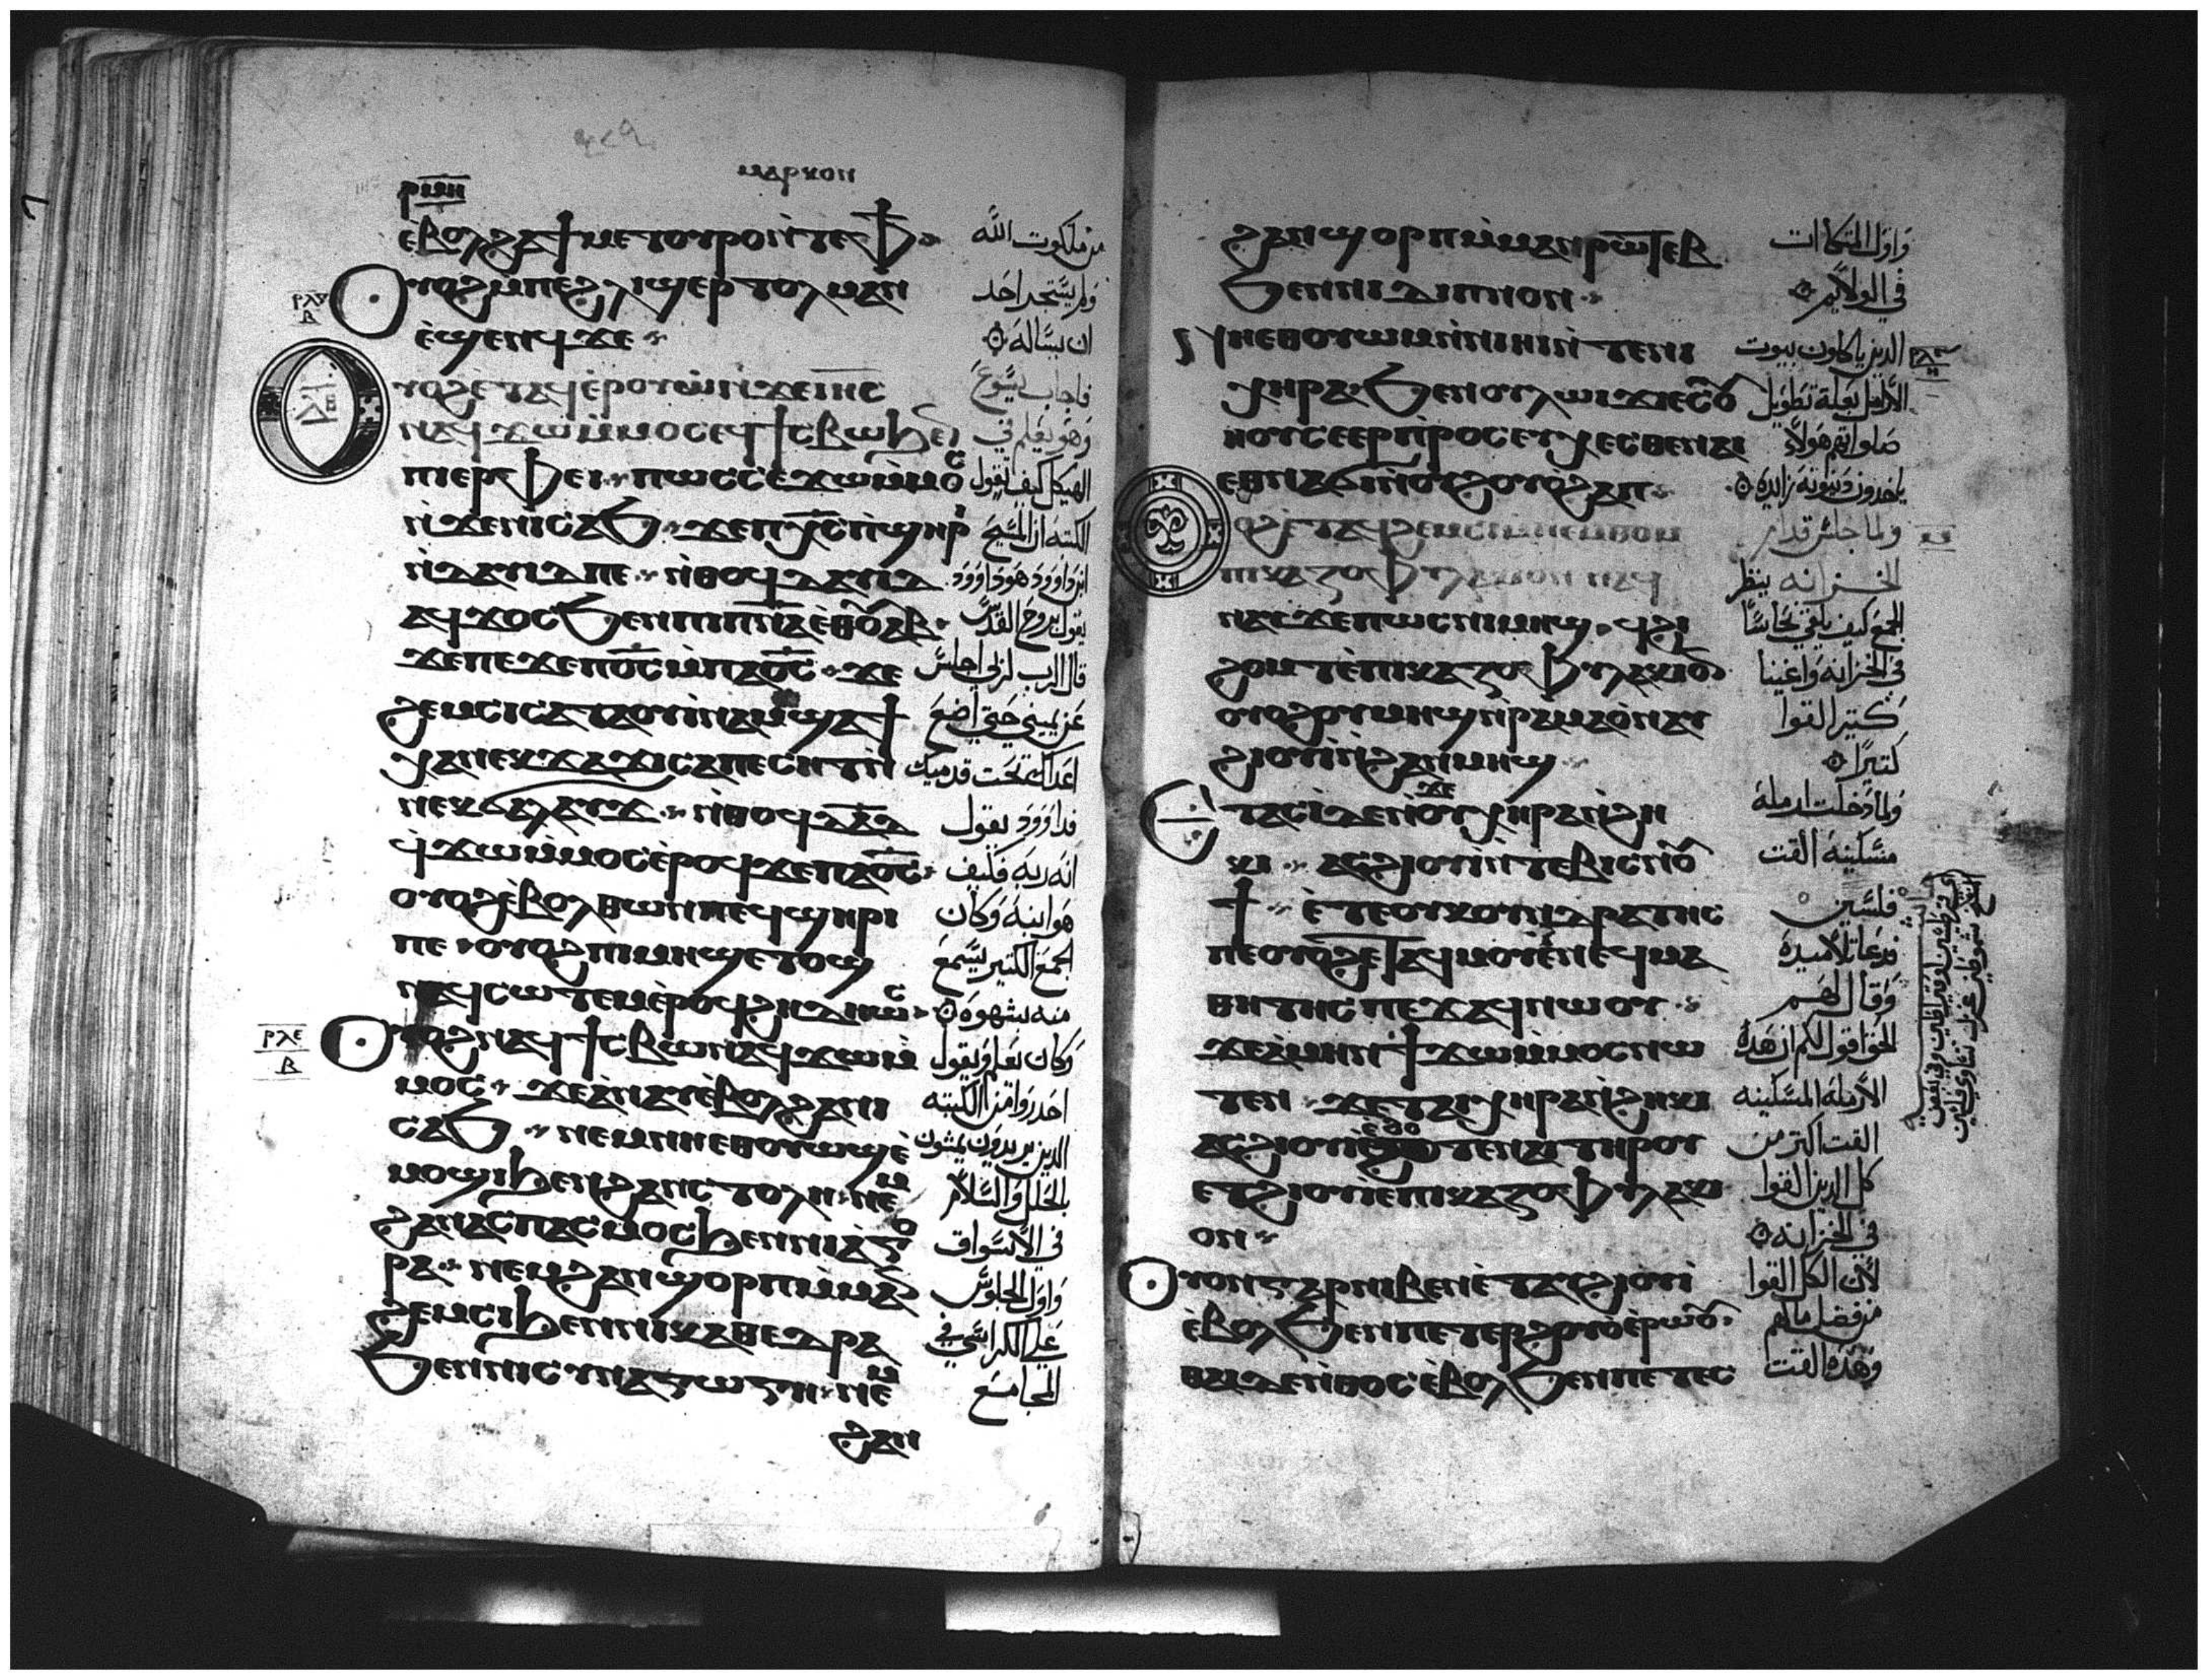 ⲣⲙⲏ
ⲙⲁⲣⲕⲟⲛ
ⲉ̀ⲃⲟⲗϩⲁϯⲙⲉⲧⲟⲩⲣⲟⲛ̀ⲧⲉⲫϯ
ⲟⲩⲟϩⲙⲡⲉϩⲗⲓϣⲉⲣⲧⲟⲗⲙⲁⲛ
ⲉ̀ϣⲉⲛϥϫⲉ
ⲟⲩⲟϩⲉⲧⲁϥⲉ̀ⲣⲟⲩⲱ̀ⲛ̀ϫⲉⲓⲏ̅ⲥ̅
ⲛⲁϥϫⲱⲙ̀ⲙⲟⲥⲉϥϯⲥⲃⲱϧⲉⲛ
ⲡⲓⲉⲣⲫⲉⲓ ⲡⲱⲥⲥⲉϫⲱⲙ̀ⲙⲟⲥ
ⲛ̀ϫⲉⲛⲓⲥⲁϧ ϫⲉⲡⲭ̅ⲥ̅ⲡ̀ϣⲏⲣⲓ
ⲛ̀ⲇⲁⲩⲓⲇⲡⲉ ⲛ̀ⲑⲟϥⲇⲁⲩⲓⲇ
ⲁϥϫⲟⲥϧⲉⲛⲡⲓⲡ̅ⲛ̅ⲁ̅ⲉ̀ⲑⲟⲩⲁⲃ
ϫⲉⲡⲉϫⲉⲡⲟ̅ⲥ̅ⲙ̀ⲡⲁⲟ̅ⲥ̅ ϫⲉ
ϩⲉⲙⲥⲓⲥⲁⲧⲁⲟⲩⲓⲛⲁⲙϣⲁϯ
ⲭⲁⲛⲉⲕϫⲁϫⲓⲥⲁⲡⲉⲥⲏⲧⲛ̀
ⲛⲉⲕϭⲁⲗⲁⲩϫ ⲛ̀ⲑⲟϥⲇⲁ̅ⲇ̅
ϥϫⲱⲙ̀ⲙⲟⲥⲉ̀ⲣⲟϥϫⲉⲡⲁⲟ̅ⲥ̅
ⲟⲩⲟϩⲉ̀ⲃⲟⲗⲑⲱⲛⲡⲉϥϣⲏⲣⲓ
ⲡⲉ ⲟⲩⲟϩⲡⲓⲙⲏϣⲉⲧⲟϣ
ⲛⲁϥⲥⲱⲧⲉⲙⲉ̀ⲣⲟϥϩⲏⲇⲉⲱⲥ
ⲣⲗⲉ ⲃ
ⲟⲩⲟϩⲛⲁϥϯⲥⲃⲱⲛⲁϥϫⲱⲙ̀
ⲙⲟⲥ ϫⲉⲁ̀ⲛⲁⲩⲉ̀ⲃⲟⲗϩⲁⲛⲓ
ⲥⲁϧ ⲛⲉⲙⲛⲏⲉⲑⲟⲩⲱϣⲉ̀
ⲙⲟϣⲓϧⲉⲛϩⲁⲛⲥⲧⲟⲗⲏ ⲛⲉⲙ
ϩⲁⲛⲁⲥⲡⲁⲥⲙⲟⲥϧⲉⲛⲛⲓⲁⲅⲟ
ⲣⲁ ⲛⲉⲙϩⲁⲛϣⲟⲣⲡⲙ̀ⲙⲁⲛ
ϩⲉⲙⲥⲓϧⲉⲛⲛⲓⲕⲁⲑⲉⲇⲣⲁ
ϧⲉⲛⲛⲓⲥⲩⲛⲁⲅⲱⲅⲏ ⲛⲉⲙ
ϩⲁⲛ
من ملكوت الله
ولم يستجر احد
ان يساله
فاجاب يسوع
وهو يعلم في
الهيكل كيف تقول
الكتبه ان المسيح
ابن داوود هو داوود
يقول بروح القدس
قال الرب لربي اجلس
عن يميني حتى اضع
اعداك تحت قدميك
فداوود يقول
انه ربه فكيف
هو ابنه وكان
الجمع الكتير يسمع
منه بشهوه
وكان يعلم ويقول
احدروا من الكتبه
الدين يريدون يمشون
بالحلل والسلام
في الاسواق
واول الجلوس
على الكراسي في
المجامع
ϩⲁⲛϣⲟⲣⲡⲙ̀ⲙⲁⲛⲣⲱⲧⲉⲃ
ϧⲉⲛⲛⲓⲇⲓⲡⲛⲟⲛ
ⲛⲏⲉⲑⲟⲩⲱⲙⲛ̀ⲛⲓⲏⲓⲛ̀ⲧⲉⲛⲓ
ⲭⲏⲣⲁ ϧⲉⲛⲟⲩⲗⲱⲓϫⲓⲉⲥⲟⲩ
ⲏⲟⲩⲥⲉⲉⲣⲡⲣⲟⲥⲉⲩⲭⲉⲥⲑⲉⲛⲁⲓ
ⲉⲑⲛⲁϭⲓⲛ̀ⲟⲩϩⲟⲩⲟ̀ϩⲁⲡ
ⲟⲩⲟϩⲉⲧⲁϥϩⲉⲙⲥⲓⲙ̀ⲡⲉⲙⲑⲟⲙ
ⲡⲓⲅⲁⲍⲟⲫⲩⲗⲁⲕⲓⲟⲛⲛⲁϥ
ⲛⲁⲩϫⲉⲡⲱⲥⲡⲓⲙⲏϣ ϥϩⲓ
ϩⲟⲙⲧⲉ̀ⲡⲓⲅⲁⲍⲟⲫⲩⲗⲁⲕⲓⲟⲛ
ⲟⲩⲟϩⲟⲩⲙⲏϣⲛ̀ⲣⲁⲙⲁⲟ̀ⲛⲁⲩ
ϩⲓⲟⲩⲓ̀ⲛ̀ϩⲁⲛⲙⲏϣ
ⲉⲧⲁⲥⲓ̀ⲇⲉⲛ̀ϫⲉⲟⲩⲭⲏⲣⲁⲛ̀ϩⲏ
ⲕⲓ ⲁⲥϩⲓⲟⲩⲓ̀ⲛ̀ⲧⲉⲃⲓⲥⲛⲟⲩ
ϯ ⲉ̀ⲧⲉⲟⲩⲕⲟⲛⲇⲣⲁⲧⲏⲥ
ⲡⲉⲟⲩⲟϩⲉⲧⲁϥⲙⲟⲩϯⲉ̀ⲛⲉϥⲙⲁ
ⲑⲏⲧⲏⲥⲡⲉϫⲁϥⲛⲱⲟⲩ
ϫⲉⲁ̀ⲙⲏⲛϯϫⲱⲙ̀ⲙⲟⲥⲛⲱ
ⲧⲉⲛ ϫⲉⲧⲁⲓⲭⲏⲣⲁⲛ̀ϩⲏⲕⲓ
ⲁⲥϩⲓⲟⲩⲓ̀ⲉϩⲟⲧⲉⲛⲁⲓⲧⲏⲣⲟⲩ
ⲉⲧϩⲓⲟⲩⲓ̀ⲉⲡⲓⲅⲁⲍⲟⲫⲩⲗⲁⲕⲓ
ⲟⲛ
ⲟⲩⲟⲛⲅⲁⲣⲛⲓⲃⲉⲛⲉ̀ⲧⲁⲩϩⲓⲟⲩⲓ̀
ⲉ̀ⲃⲟⲗϧⲉⲛⲡⲉⲧⲉⲣϩⲟⲩⲟ̀ⲉ̀ⲣⲱⲟⲩ
ⲑⲁⲓⲇⲉⲛ̀ⲑⲟⲥⲉ̀ⲃⲟⲗϧⲉⲛⲡⲉⲧⲉⲥ
واول المتكاات
في الولايم
الدين ياكلون بيوت
الارامل بعلة تطويل
صلواتهم هولاء
ياخدون دينونه زايده
ولما جلس قدام
الخزانه ينظر
الجمع كيف يلقي نحاسا
في الخزانه واغنيا
كتير القوا
كتيرا
ولما دخلت ارمله
مسكينه القت
فلسين
فدعا تلاميده
وقال لهم
الحق اقول لكم ان هده
الارمله المسكينه
القت اكتر من
كل الدين القوا
في الخزانه
لان الكل القوا
من فضل مالهم
وهده القت